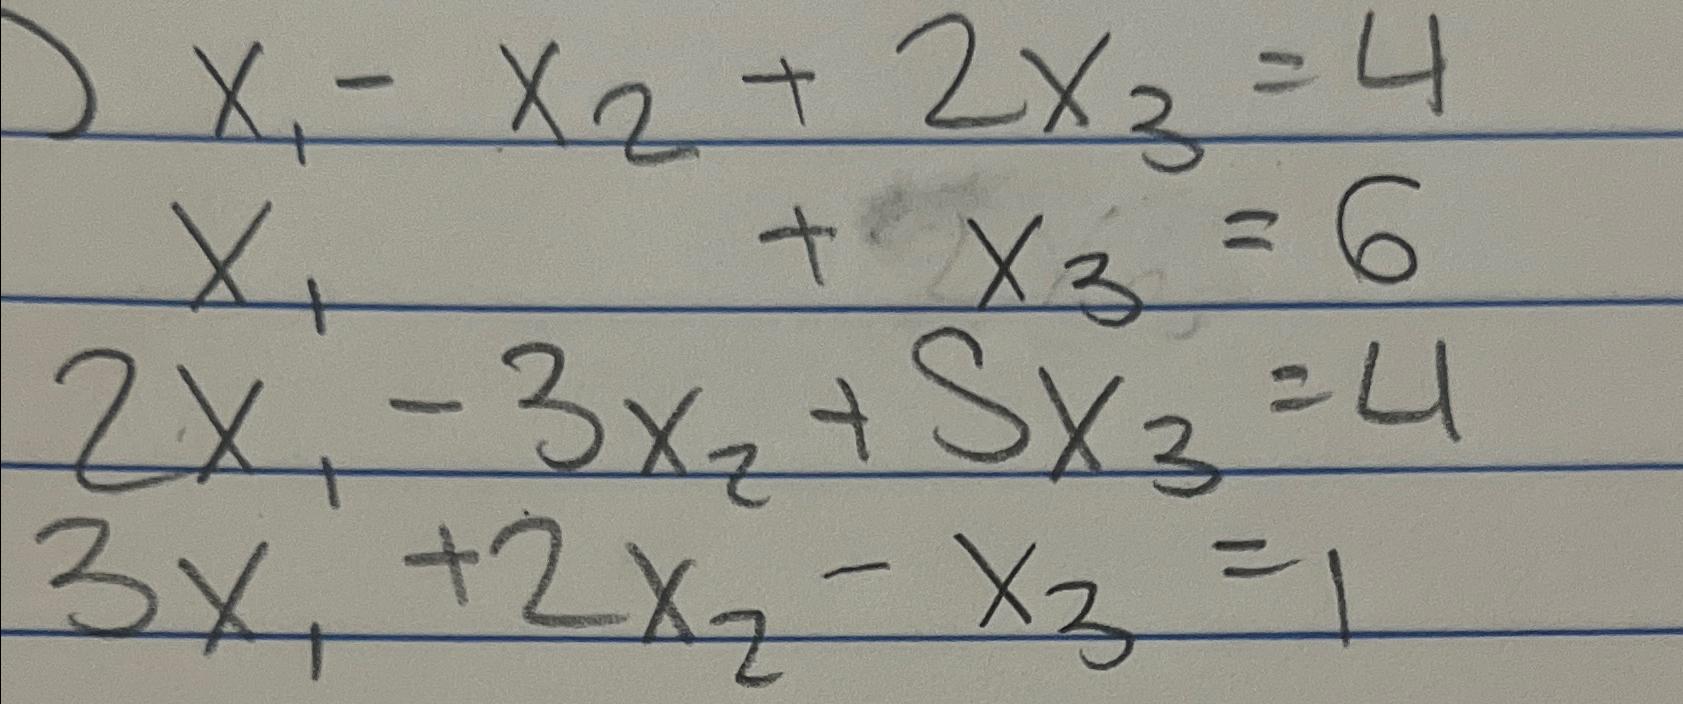 ) x₁ - x₂ + 2x₃ = 4
x₁ + x₃ = 6
2x₁ - 3x₂ + 5x₃ = 4
3x₁ + 2x₂ - x₃ = 1